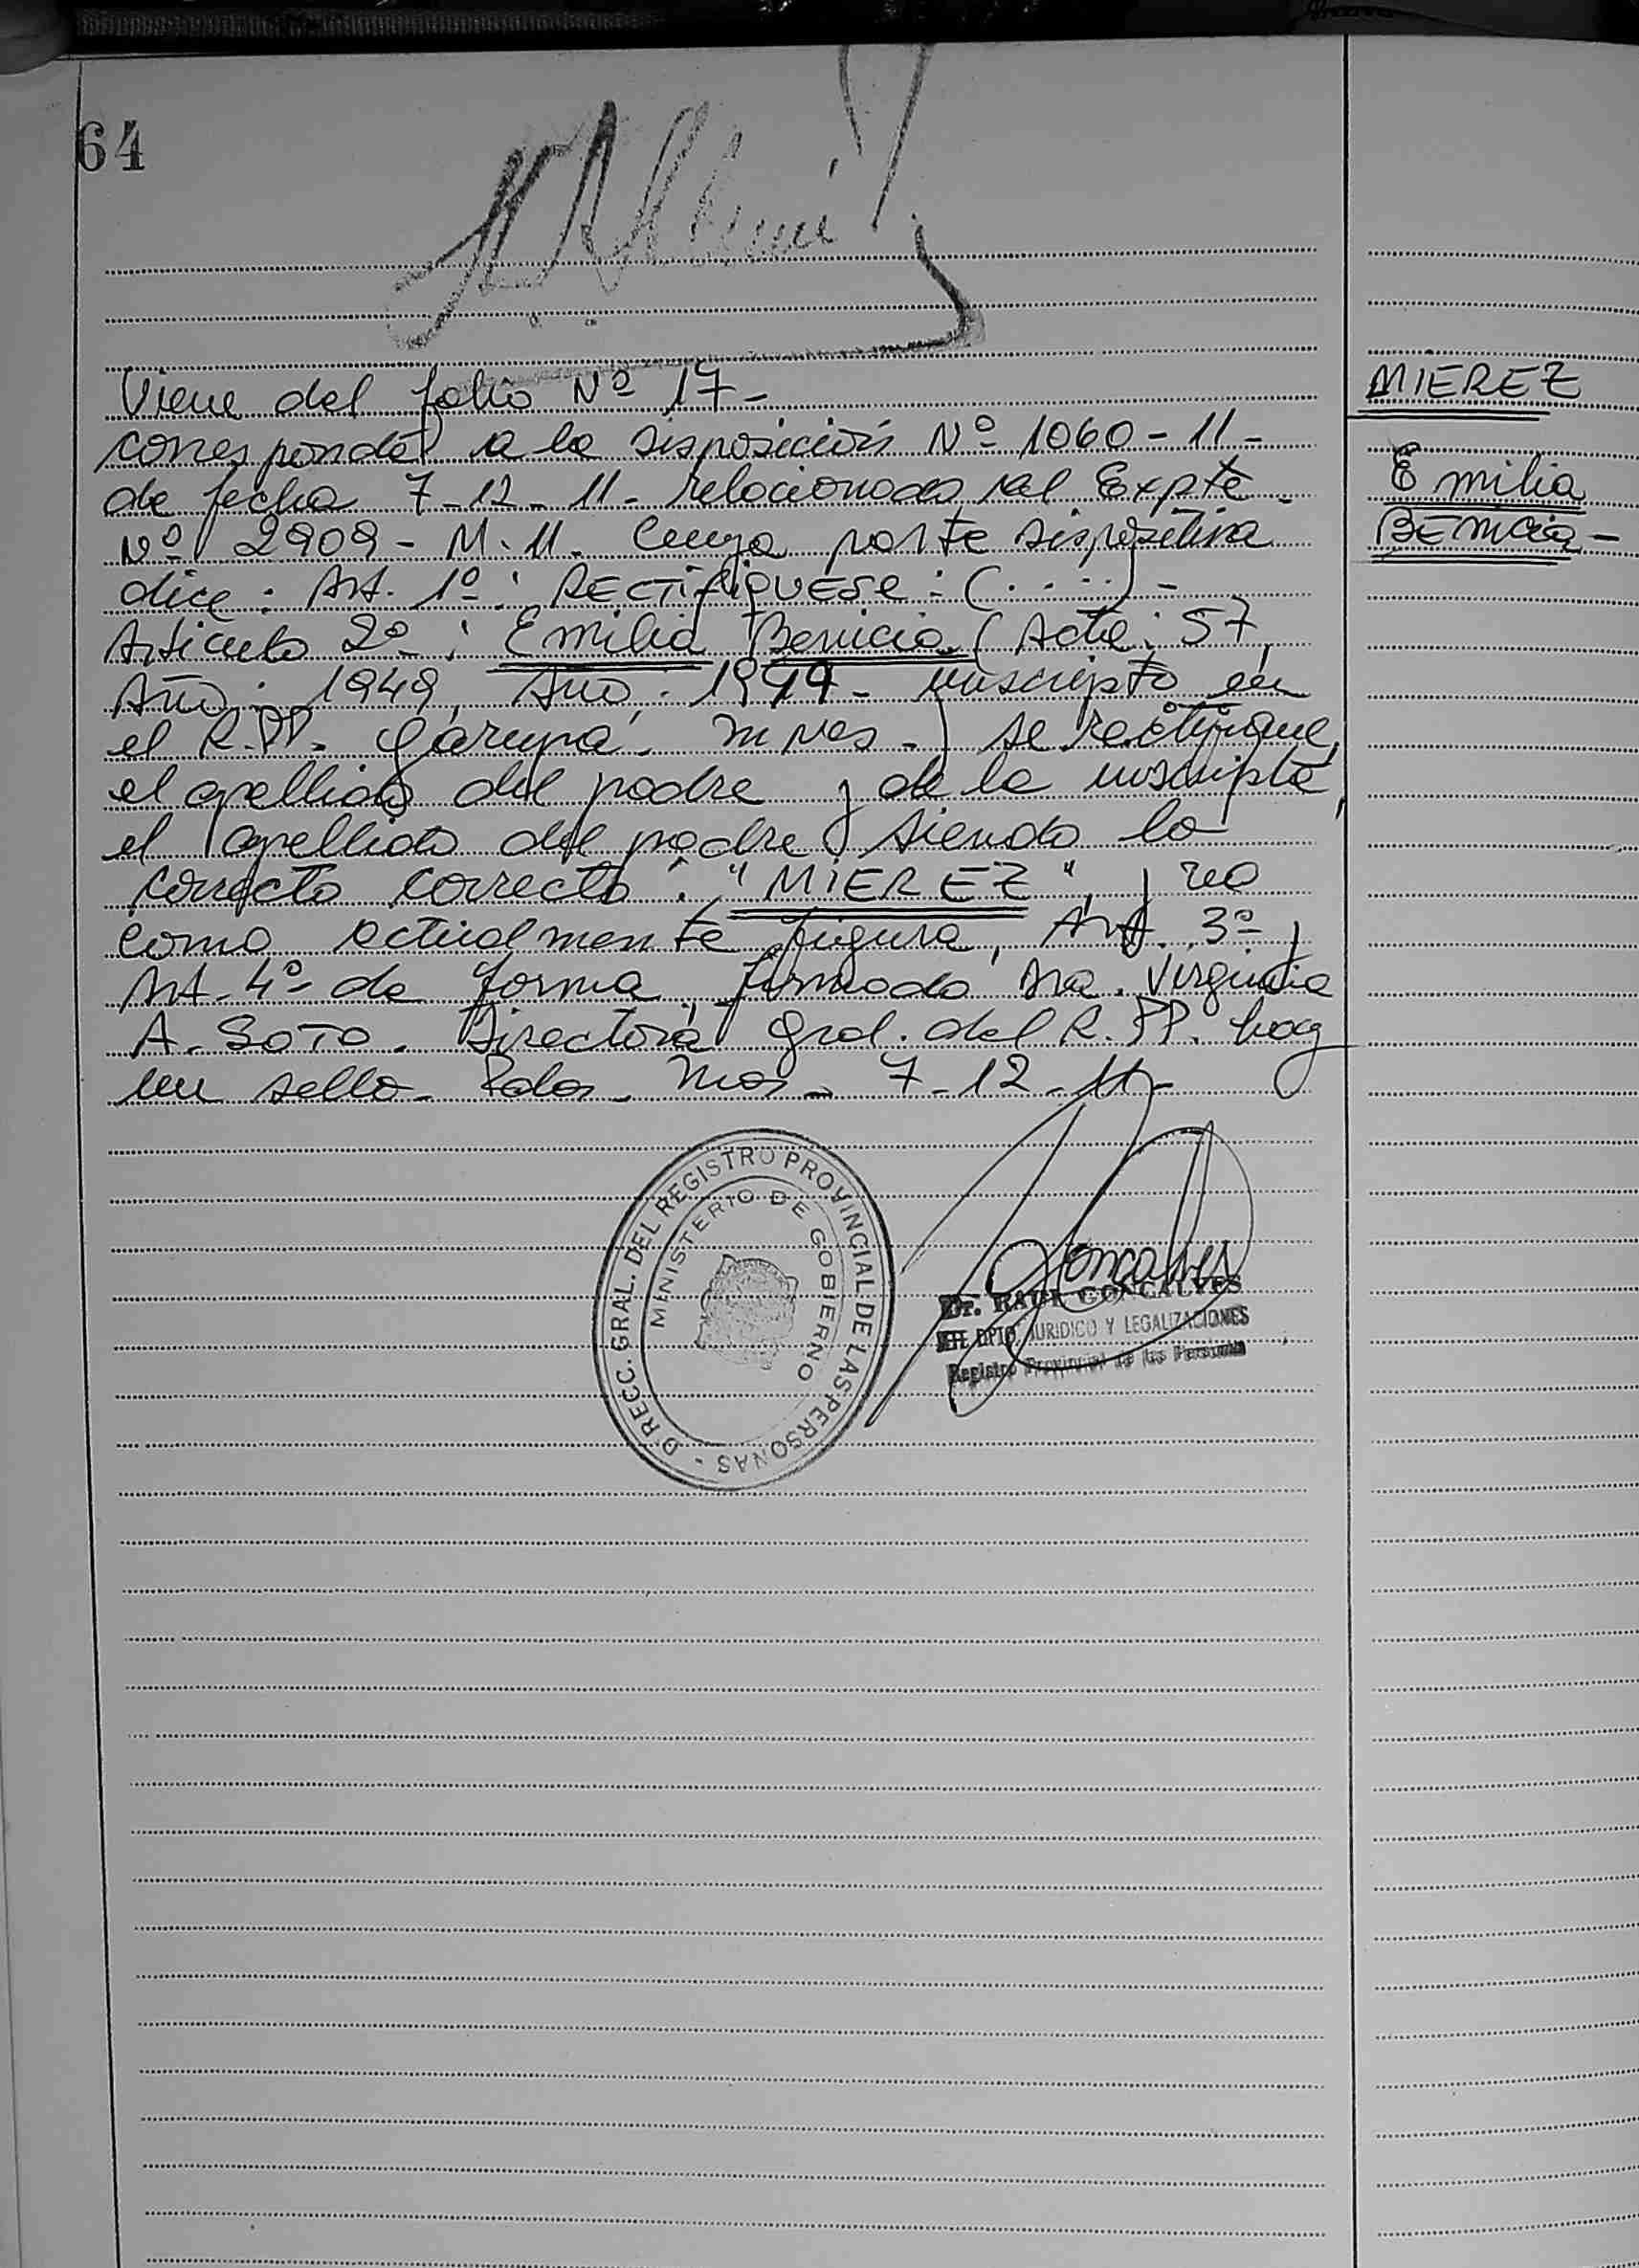 64
Viene del folio Nº 17-
MIEREZ
corresponde a la disposición Nº 1060-11-
Emilia
de fecha 7-12-11- relacionado al Expte.
Benicia-
Nº 2909-M-11. Cuya parte dispositiva
dice: Art. 1º: RECTIFIQUESE: (.....)-
Artículo 2º: Emilia Benicia (Acta: 57,
Año: 1949, Año: 1949- inscripto en
el R.PP. Garupá. Mnes-) se rectifique,
el apellido del padre y de la inscripta,
el apellido del padre y siendo lo
correcto correcto: "MIEREZ", y no
como actualmente figura, Art. 3º y
Art. 4º de forma, firmado Sra. Virginia
A. SOTO. Directora Gral. del R.PP. hay
un sello- Pdas. Mnes- 7-12-11-
DIRECC. GRAL. DEL REGISTRO PROVINCIAL DE LAS PERSONAS -
MINISTERIO DE GOBIERNO
Goncalves
Dr. RAUL GONCALVES
JEFE DPTO. JURIDICO Y LEGALIZACIONES
Registro Provincial de las Personas